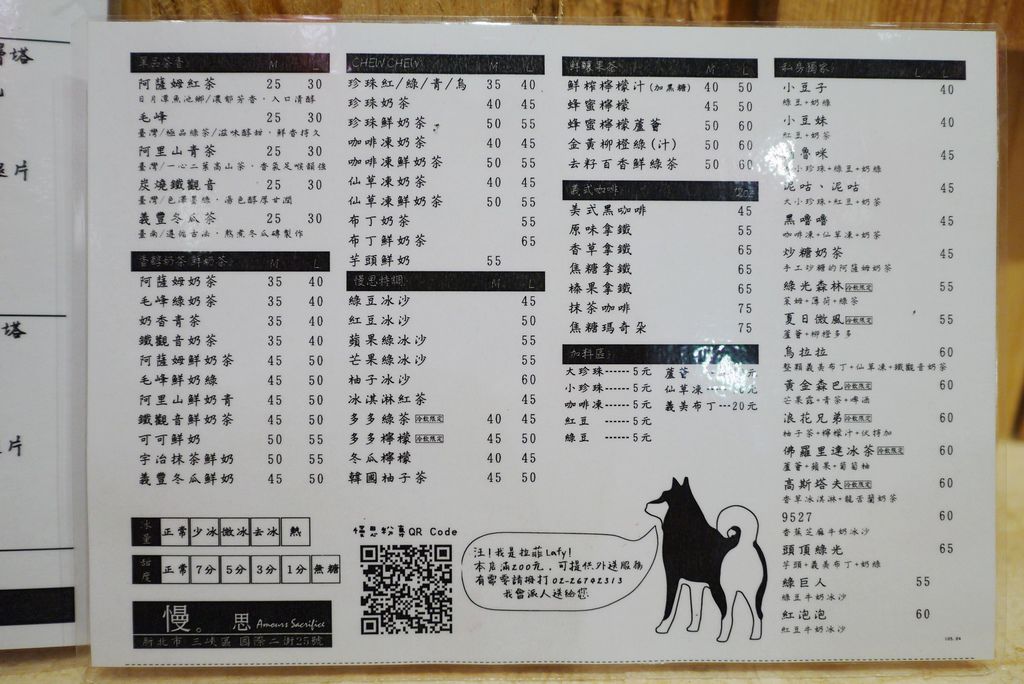 單品茶香 M L
阿薩姆紅茶 25 30
日月潭魚池鄉/濃郁芳香,入口清醇
毛峰 25 30
臺灣/極品綠茶/滋味醇甜,鮮香持久
阿里山青茶 25 30
臺灣/一心二葉高山茶,香氣足喉韻強
炭燒鐵觀音 25 30
臺灣/色澤墨綠,湯色醇厚甘潤
義豐冬瓜茶 25 30
臺南/遵循古法,熬煮冬瓜磚製作
香醇奶茶 鮮奶茶 M L
阿薩姆奶茶 35 40
毛峰綠奶茶 35 40
奶香青茶 35 40
鐵觀音奶茶 35 40
阿薩姆鮮奶茶 45 50
毛峰鮮奶綠 45 50
阿里山鮮奶青 45 50
鐵觀音鮮奶茶 45 50
可可鮮奶 50 55
宇治抹茶鮮奶 50 55
義豐冬瓜鮮奶 45 50
冰量 正常 少冰 微冰 去冰 熱
甜度 正常 7分 5分 3分 1分 無糖
慢。思 Amours Sacrifice
新北市 三峽區 國際二街25號
CHEW CHEW M L
珍珠紅/綠/青/烏 35 40
珍珠奶茶 40 45
珍珠鮮奶茶 50 55
咖啡凍奶茶 40 45
咖啡凍鮮奶茶 50 55
仙草凍奶茶 40 45
仙草凍鮮奶茶 50 55
布丁奶茶 55
布丁鮮奶茶 65
芋頭鮮奶 55
慢思特調 M L
綠豆冰沙 45
紅豆冰沙 50
蘋果綠冰沙 55
芒果綠冰沙 55
柚子冰沙 60
冰淇淋紅茶 45
多多綠茶 冷飲限定 40 45
多多檸檬 冷飲限定 45 50
冬瓜檸檬 40 45
韓國柚子茶 45 50
慢思粉專QR Code
汪!我是拉菲Lafy!
本店滿200元,可提供外送服務
有需要請撥打 02-26742313
我會派人送給您
鮮釀果茶 M L
鮮榨檸檬汁(加黑糖) 40 50
蜂蜜檸檬 45 50
蜂蜜檸檬蘆薈 50 60
金黃柳橙綠(汁) 50 60
去籽百香鮮綠茶 50 60
義式咖啡
美式黑咖啡 45
原味拿鐵 55
香草拿鐵 65
焦糖拿鐵 65
榛果拿鐵 65
抹茶咖啡 75
焦糖瑪奇朵 75
加料區
大珍珠------5元 蘆薈
小珍珠------5元 仙草凍
咖啡凍------5元 義美布丁--20元
紅豆 ------5元
綠豆 ------5元
私房獨家 L L
小豆子 40
綠豆+奶綠
小豆妹 45
紅豆+奶茶
魯咪 45
小珍珠+綠豆+奶綠
泥咕、泥咕 45
大小珍珠+紅豆+奶茶
黑嚕嚕 45
咖啡凍+仙草凍+奶茶
炒糖奶茶 45
手工炒糖的阿薩姆奶茶
綠光森林 冷飲限定 55
萊姆+薄荷+綠茶
夏日微風 冷飲限定 55
蘆薈+柳橙多多
烏拉拉 60
整顆義美布丁+仙草凍+鐵觀音奶茶
黃金森巴 冷飲限定 60
芒果露+青茶+啤酒
浪花兄弟 冷飲限定 60
柚子茶+檸檬汁+伏特加
佛羅里達冰茶 冷飲限定 60
蘆薈+蘋果+葡萄柚
高斯塔夫 冷飲限定 60
香草冰淇淋+龍舌蘭奶茶
9527 60
香蕉芝麻牛奶冰沙
頭頂綠光 65
芋頭+義美布丁+奶綠
綠巨人 55
綠豆牛奶冰沙
紅泡泡 60
紅豆牛奶冰沙
105.04